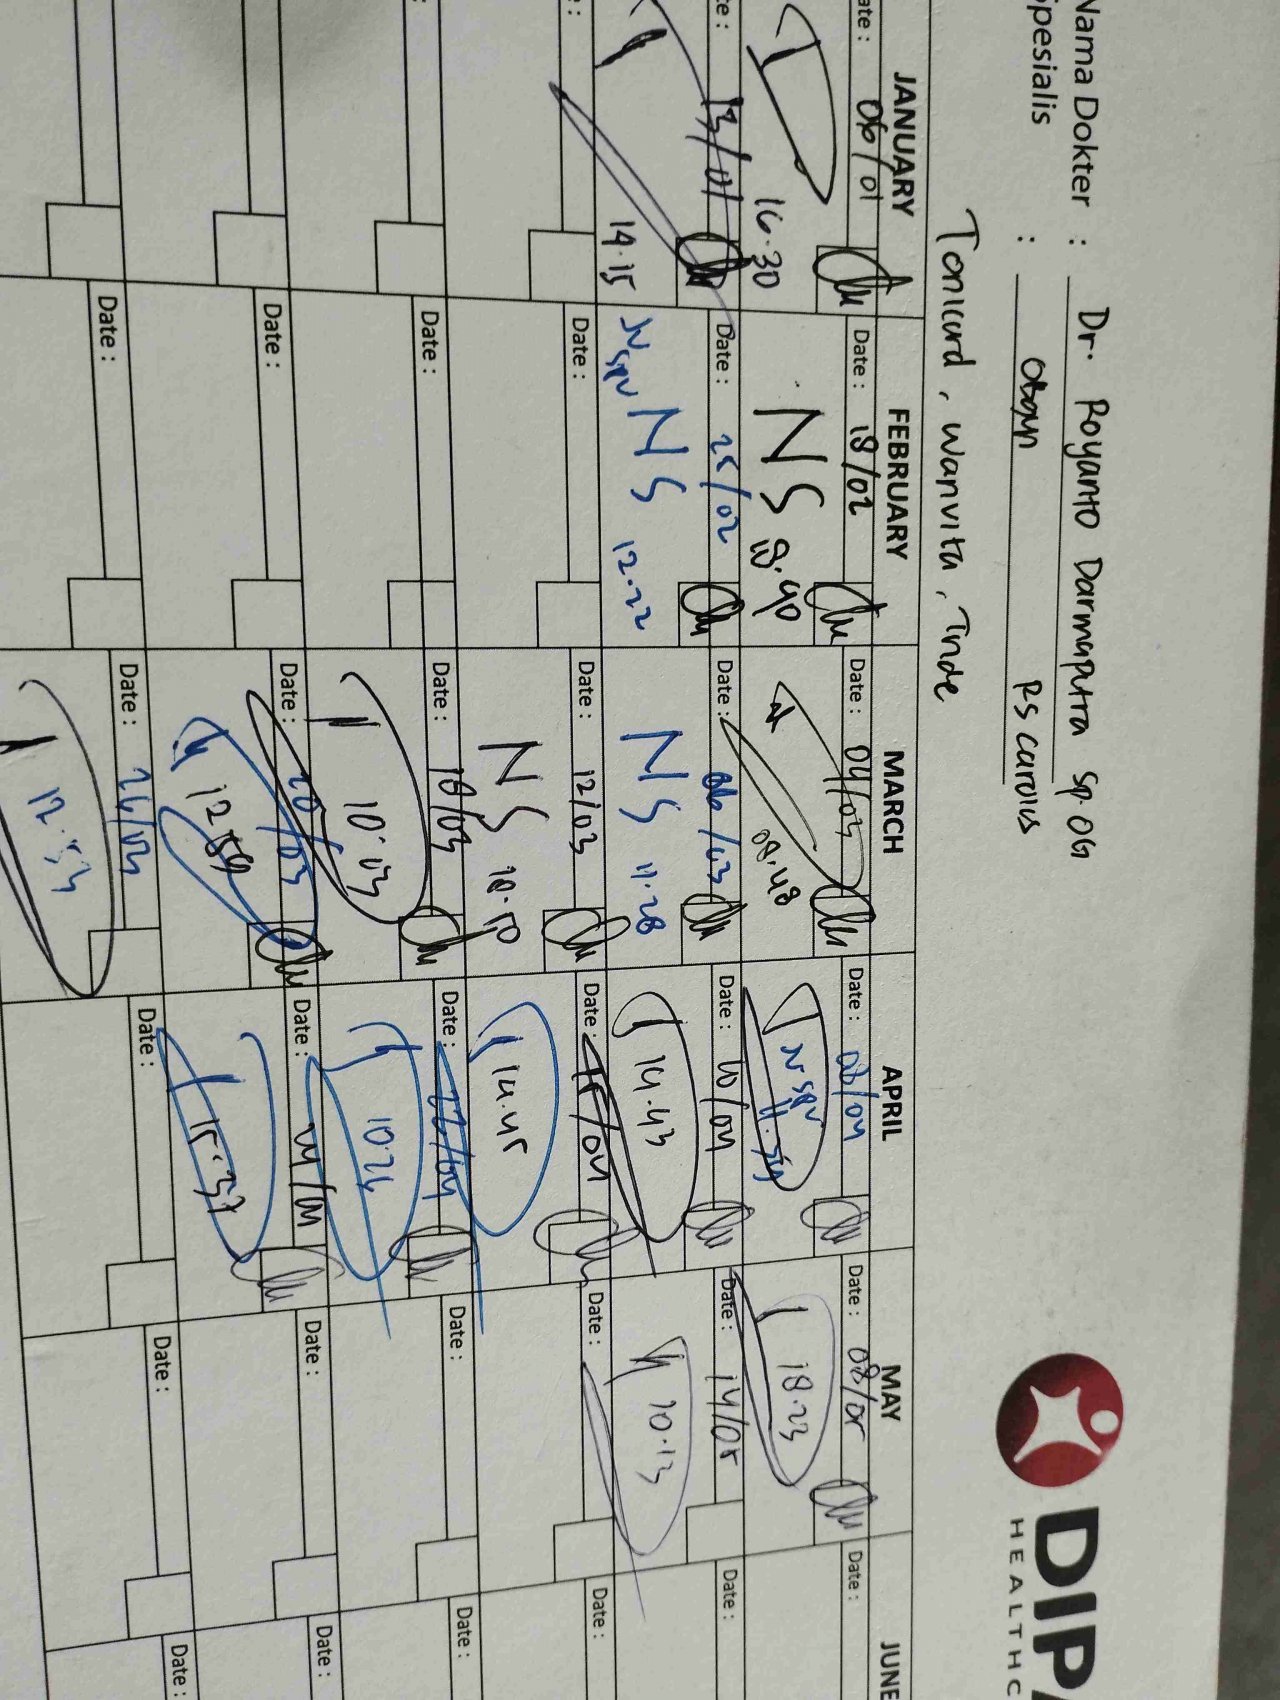 Nama Dokter : Dr. Royanto Darmaputra Sp.OG
Spesialis : Obgyn RS Carolus
DIPA
HEALTHC
Tonicard, Wanvita, Tride
JANUARY FEBRUARY MARCH APRIL MAY JUNE
ate : 06/01 Date : 18/02 Date : 04/03 Date : 08/04 Date : 08/05 Date :
16.30 NS 18.40 08.48 18.23
te : 13/01 Date : 25/02 Date : 06/03 Date : 10/04 Date : 14/05 Date :
14.15 NS 12.22 NS 11.28 14.43 10.13
: Date : Date : 12/03 Date : 15/04 Date : Date :
NS 10.50 14.45
: Date : Date : 18/03 Date : 22/04 Date : Date :
10.03 10.26
Date : Date : 20/03 Date : 24/04 Date : Date :
12.59 15.37
Date : Date : 26/03 Date : Date : Date :
12.53